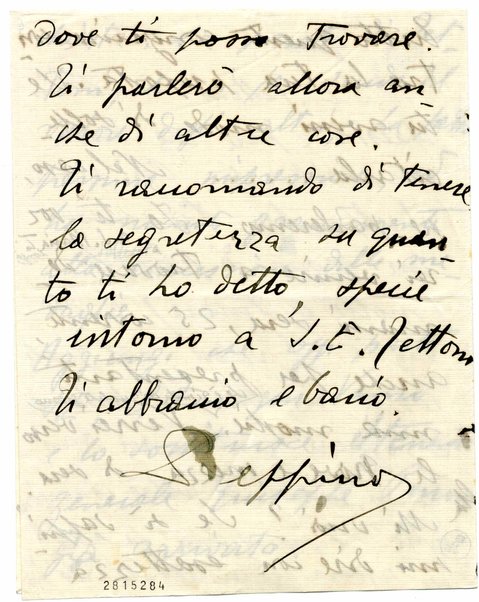 dove ti posso trovare.
Ti parlerò allora an-
che di altre cose.
Ti raccomando di tenere
la segretezza su quan-
to ti ho detto, specie
intorno a S. E. Tettoni
Ti abbraccio e bacio.
Peppino
2815284